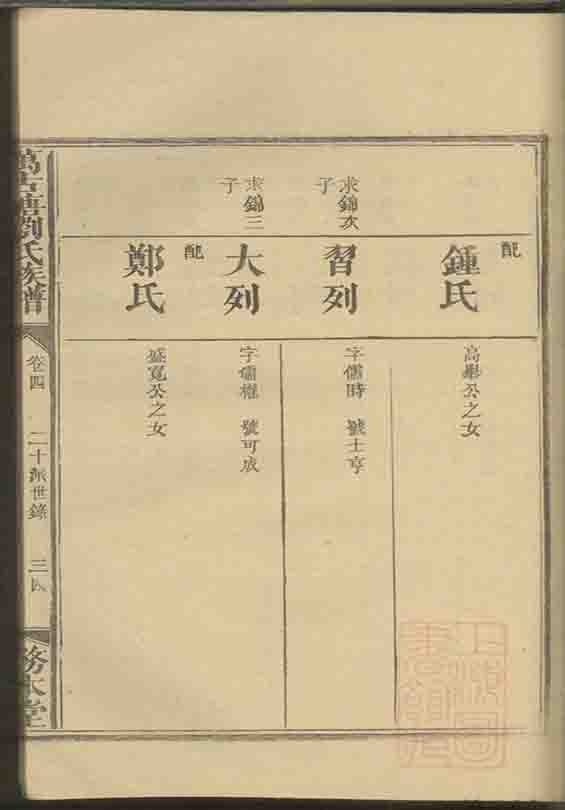 配
鍾氏
高舉公之女
求錦次
子
習列
字儒時 號士亨
求錦三
子
大列
字儒權 號可成
配
鄭氏
盛寬公之女
劉氏族譜
卷四
二十派世錄
務本堂